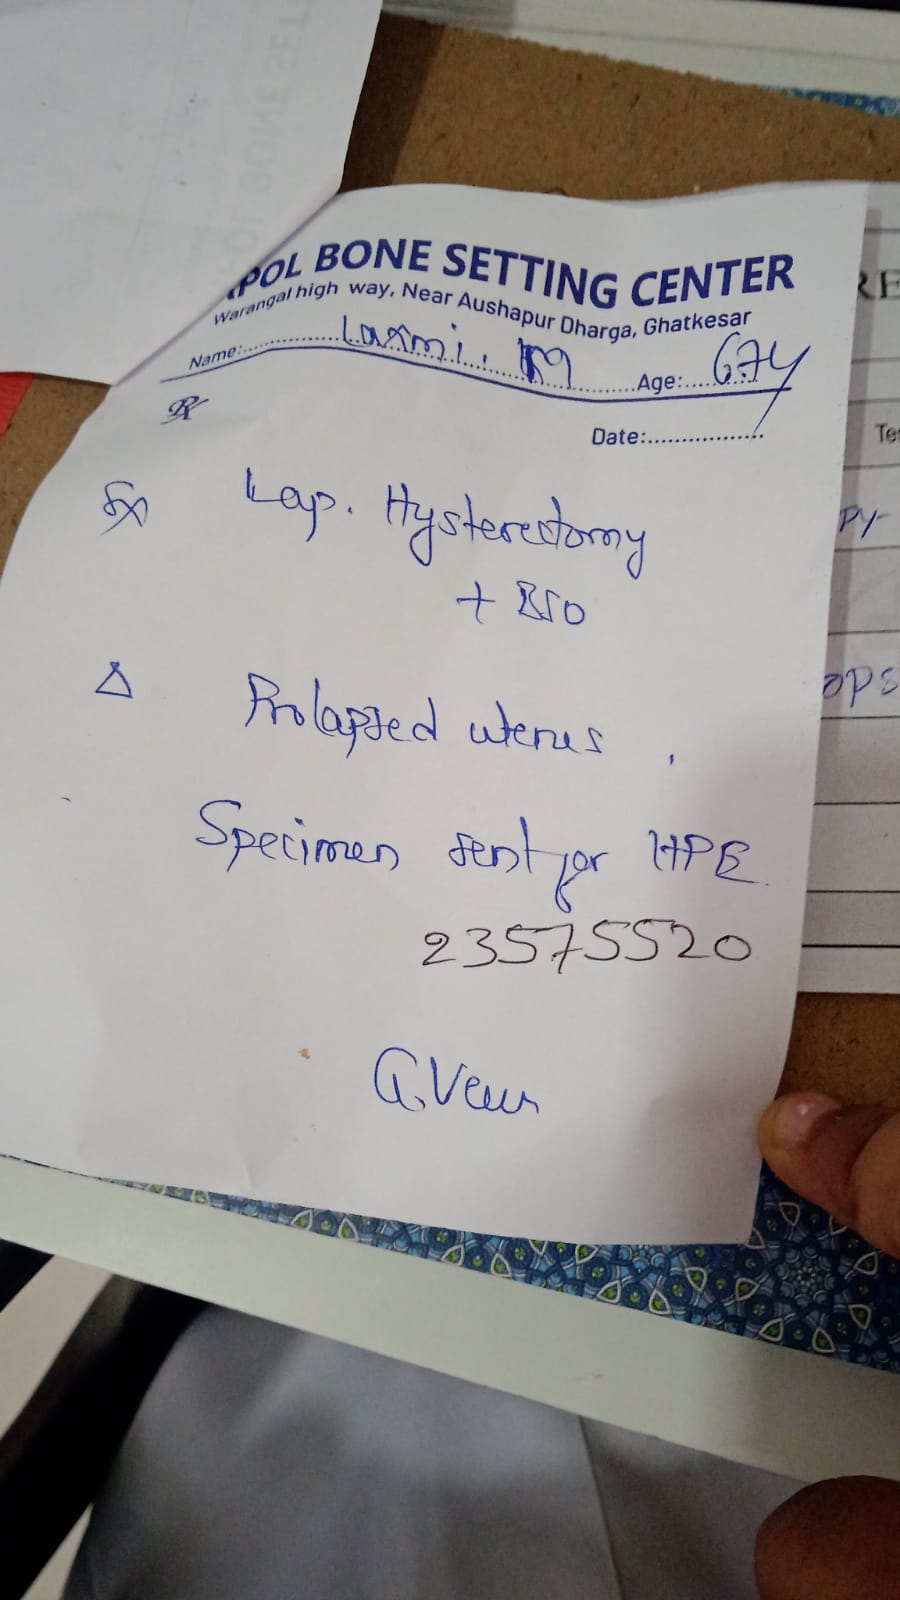 POL BONE SETTING CENTER
Warangal high way, Near Aushapur Dharga, Ghatkesar
Name: Laxmi. M Age: 67y
Rx
Date:
Sx Lap. Hysterectomy
+ BSO
Δ Prolapsed uterus.
Specimen sent for HPE
23575520
G. Venu
RE
Te
PY-
OPS